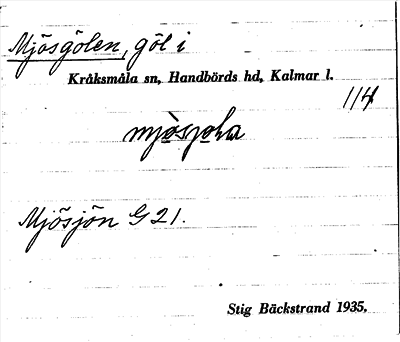 Mjösgölen, göl i
Kråksmåla sn, Handbörds hd, Kalmar l.
114
Mjösjön G 21.
Stig Bäckstrand 1935.